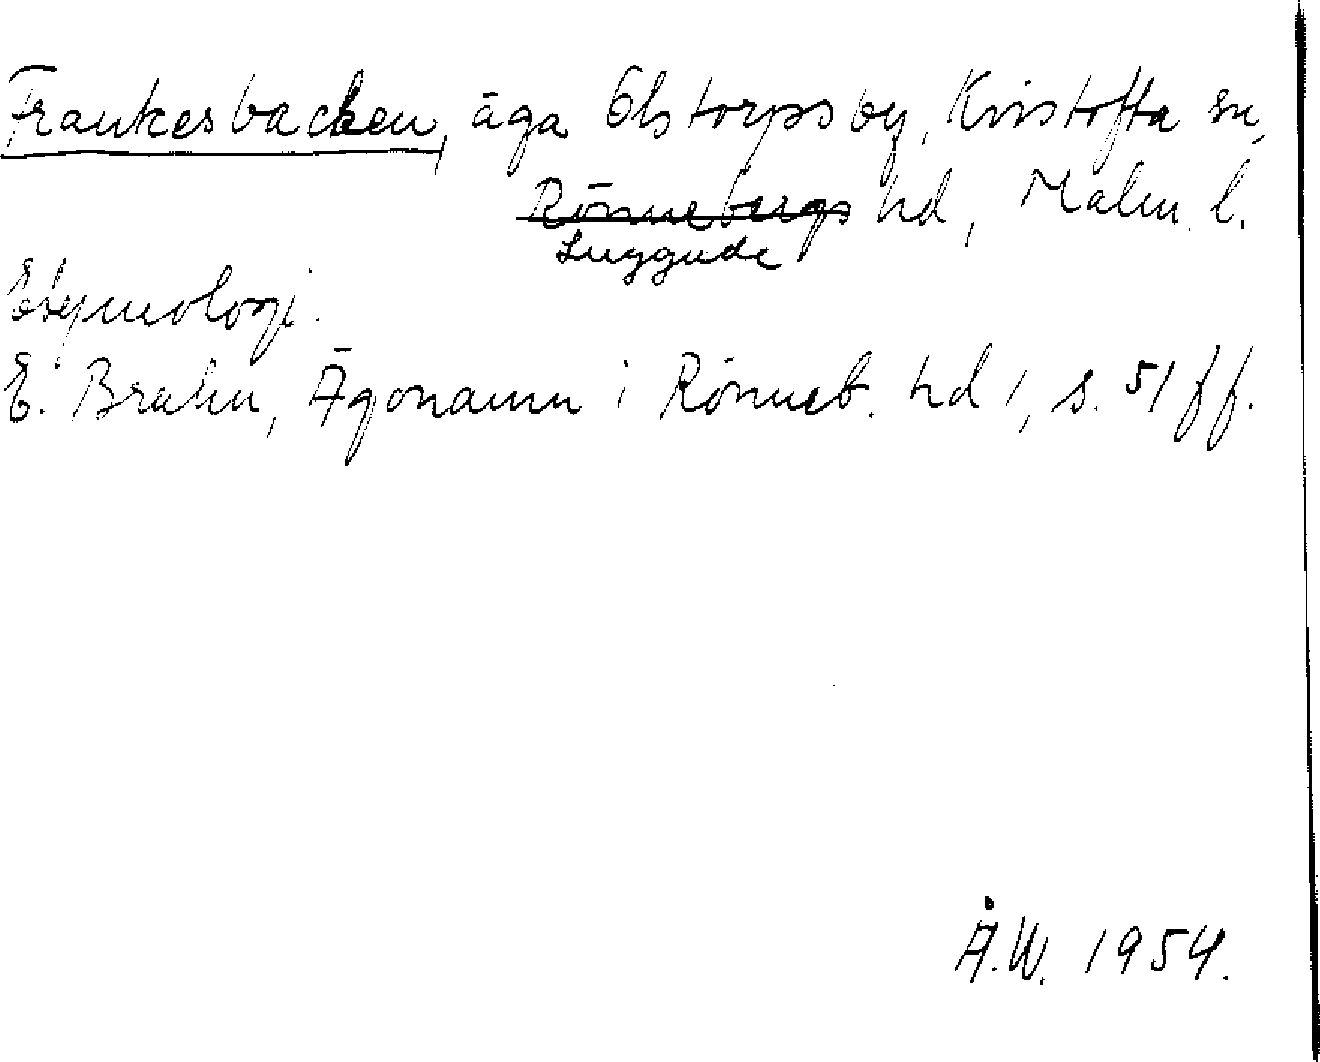 Frankesbacken, äga Olstorps by, Kvistofta sn,
Rönnebergs hd, Malm. l.
Luggude
Etymologi.
E. Brahn, Ägonamn i Rönneb. hd 1, s. 51 ff.
Å.W. 1954.